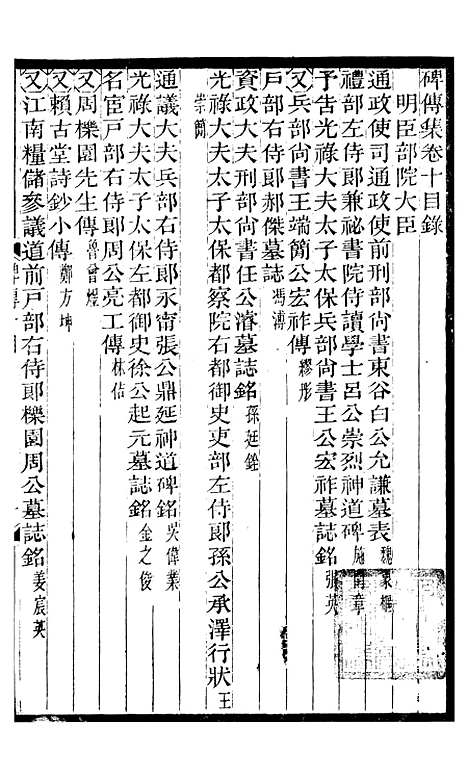 碑傳集卷十目錄
明臣部院大臣
通政使司通政使前刑部尙書東谷白公允謙墓表 魏象樞
禮部左侍郎兼祕書院侍讀學士呂公崇烈神道碑 施閏章
予告光祿大夫太子太保兵部尙書王公宏祚墓誌銘 張英
又兵部尙書王端簡公宏祚傳 繆彤
戶部右侍郎郝傑墓誌 馮溥
資政大夫刑部尙書任公濬墓誌銘 孫廷銓
光祿大夫太子太保都察院右都御史吏部左侍郎孫公承澤行狀 王
崇簡
通議大夫兵部右侍郎永甯張公鼎延神道碑銘 吳偉業
光祿大夫太子太保左都御史徐公起元墓誌銘 金之俊
名宦戶部右侍郎周公亮工傳 林佶
又周櫟園先生傳 魯曾煜
又賴古堂詩鈔小傳 鄭方坤
又江南糧儲參議道前戶部右侍郎櫟園周公墓誌銘 姜宸英